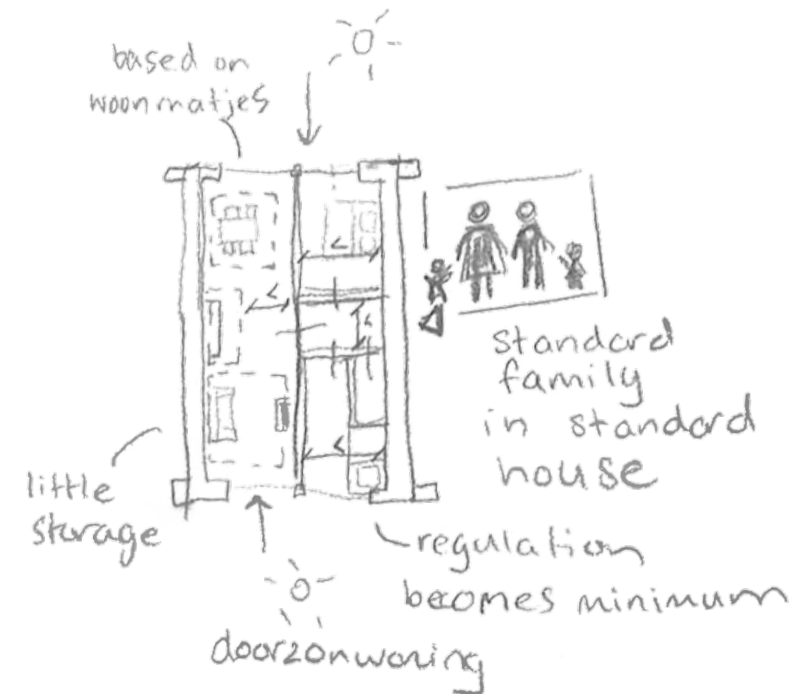 based on
woonmatjes
standard
family
in standard
house
little
storage
regulation
becomes minimum
doorzonwoning